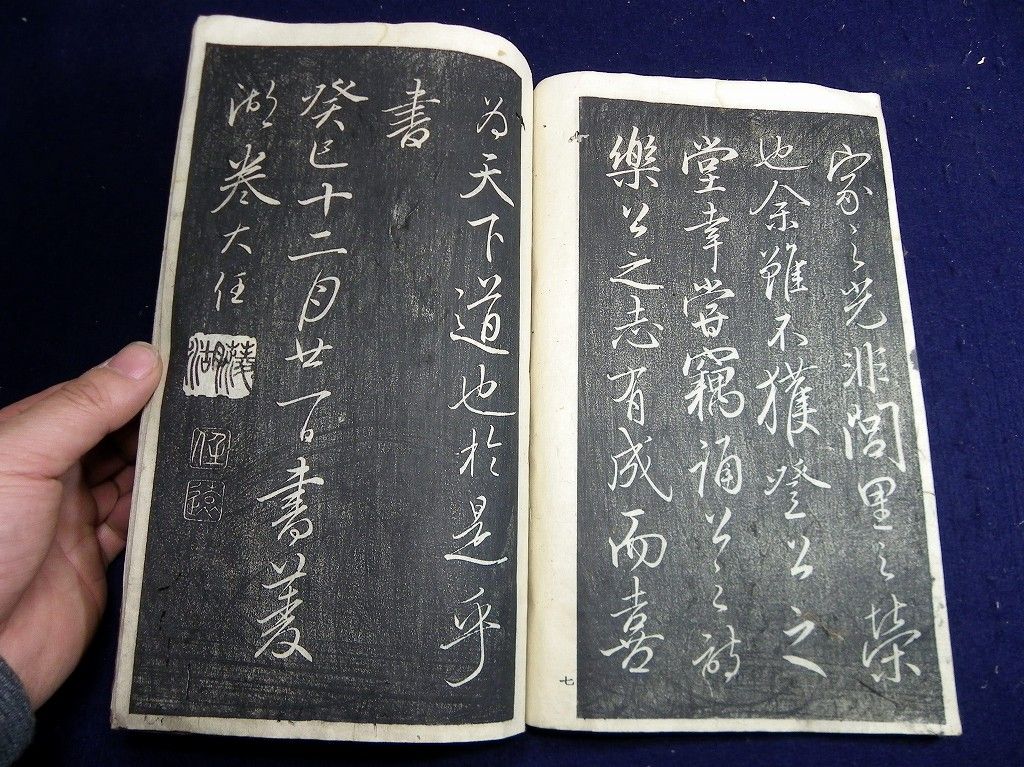 家之光非閭里之榮
也余雖不獲登公之
堂幸嘗竊誦公之詩
樂公之志有成而喜
七
為天下道也於是乎
書
癸巳十二月廿一日書菱
湖巻大任
菱湖